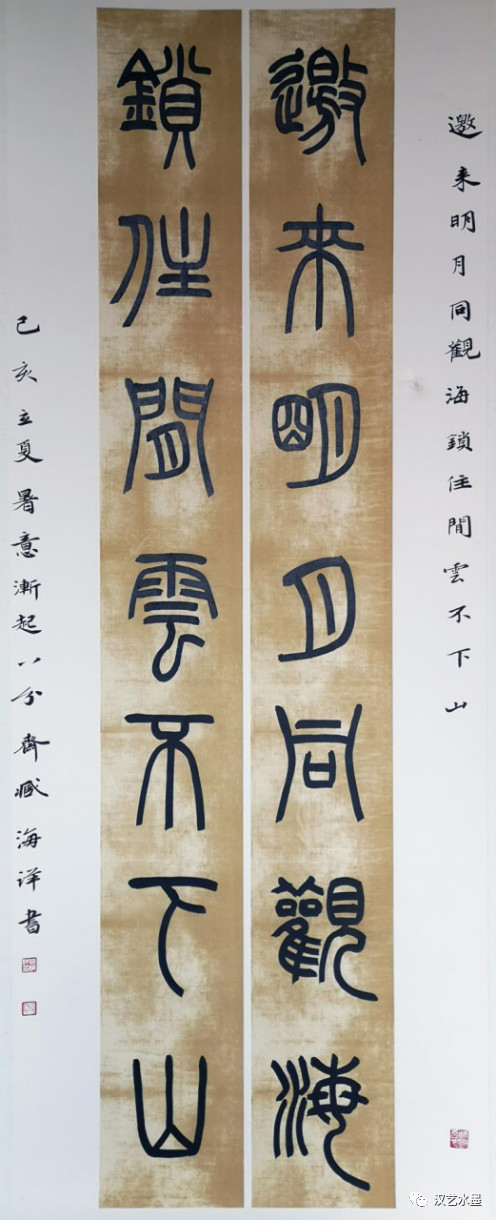 邀来明月同觀海鎖住閒雲不下山
邀来明月同觀海
鎖住閒雲不下山
己亥立夏暑意漸起八分齊臧海洋書
汉艺水墨